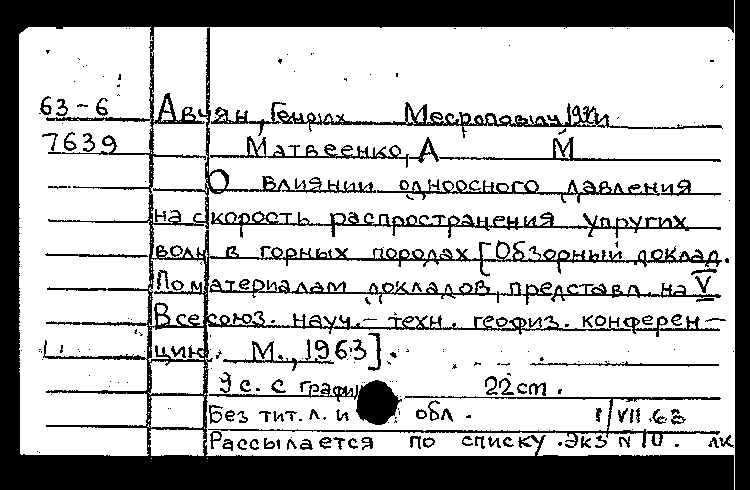 63-6 Авчян, Генрих Месропович, 1930 и
7639 Матвеенко, А М
О влиянии одноосного давления
на скорость распространения упругих
волн в горных породах [Обзорный доклад.
По материалам докладов, представл. на V
Всесоюз. науч.-техн. геофиз. конферен-
цию. М., 1963].
9 с. с графи 22 cm.
Без тит. л. и обл. 1/VII.63
Рассылается по списку. Экз N 10. лк